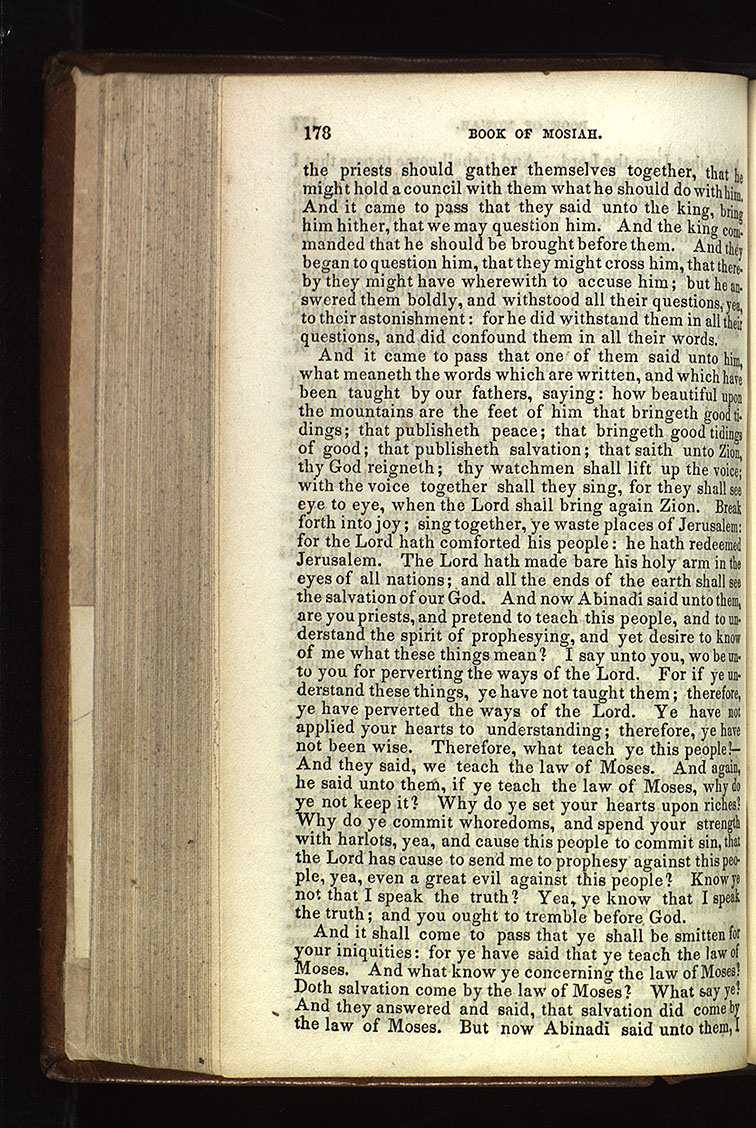 178 BOOK OF MOSIAH.
the priests should gather themselves together, that he
might hold a council with them what he should do with him.
And it came to pass that they said unto the king, bring
him hither, that we may question him. And the king com-
manded that he should be brought before them. And they
began to question him, that they might cross him, that there-
by they might have wherewith to accuse him; but he an-
swered them boldly, and withstood all their questions, yea,
to their astonishment: for he did withstand them in all their
questions, and did confound them in all their words.
And it came to pass that one of them said unto him,
what meaneth the words which are written, and which have
been taught by our fathers, saying: how beautiful upon
the mountains are the feet of him that bringeth good ti-
dings; that publisheth peace; that bringeth good tidings
of good; that publisheth salvation; that saith unto Zion,
thy God reigneth; thy watchmen shall lift up the voice;
with the voice together shall they sing, for they shall see
eye to eye, when the Lord shall bring again Zion. Break
forth into joy; sing together, ye waste places of Jerusalem:
for the Lord hath comforted his people: he hath redeemed
Jerusalem. The Lord hath made bare his holy arm in the
eyes of all nations; and all the ends of the earth shall see
the salvation of our God. And now Abinadi said unto them,
are you priests, and pretend to teach this people, and to un-
derstand the spirit of prophesying, and yet desire to know
of me what these things mean? I say unto you, wo be un-
to you for perverting the ways of the Lord. For if ye un-
derstand these things, ye have not taught them; therefore,
ye have perverted the ways of the Lord. Ye have not
applied your hearts to understanding; therefore, ye have
not been wise. Therefore, what teach ye this people?—
And they said, we teach the law of Moses. And again,
he said unto them, if ye teach the law of Moses, why do
ye not keep it? Why do ye set your hearts upon riches?
Why do ye commit whoredoms, and spend your strength
with harlots, yea, and cause this people to commit sin, that
the Lord has cause to send me to prophesy against this peo-
ple, yea, even a great evil against this people? Know ye
not that I speak the truth? Yea, ye know that I speak
the truth; and you ought to tremble before God.
And it shall come to pass that ye shall be smitten for
your iniquities: for ye have said that ye teach the law of
Moses. And what know ye concerning the law of Moses?
Doth salvation come by the law of Moses? What say ye?
And they answered and said, that salvation did come by
the law of Moses. But now Abinadi said unto them, I